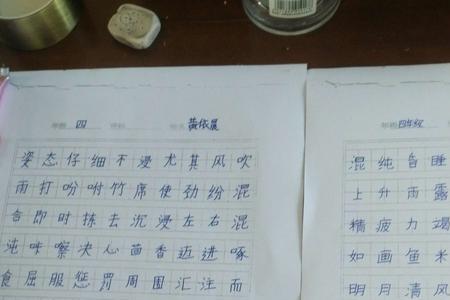 四 黄依晨
姿态仔细不漫尤其风吹
雨打吩咐竹席使劲纷混
告即时拣去沉浸左右混
沌咔嚓决心茴香迈进啄
食屈服惩罚周围汇注而
四年级
混纯旨睡
上升雨露
精疲力竭
如画鱼米
明月清风